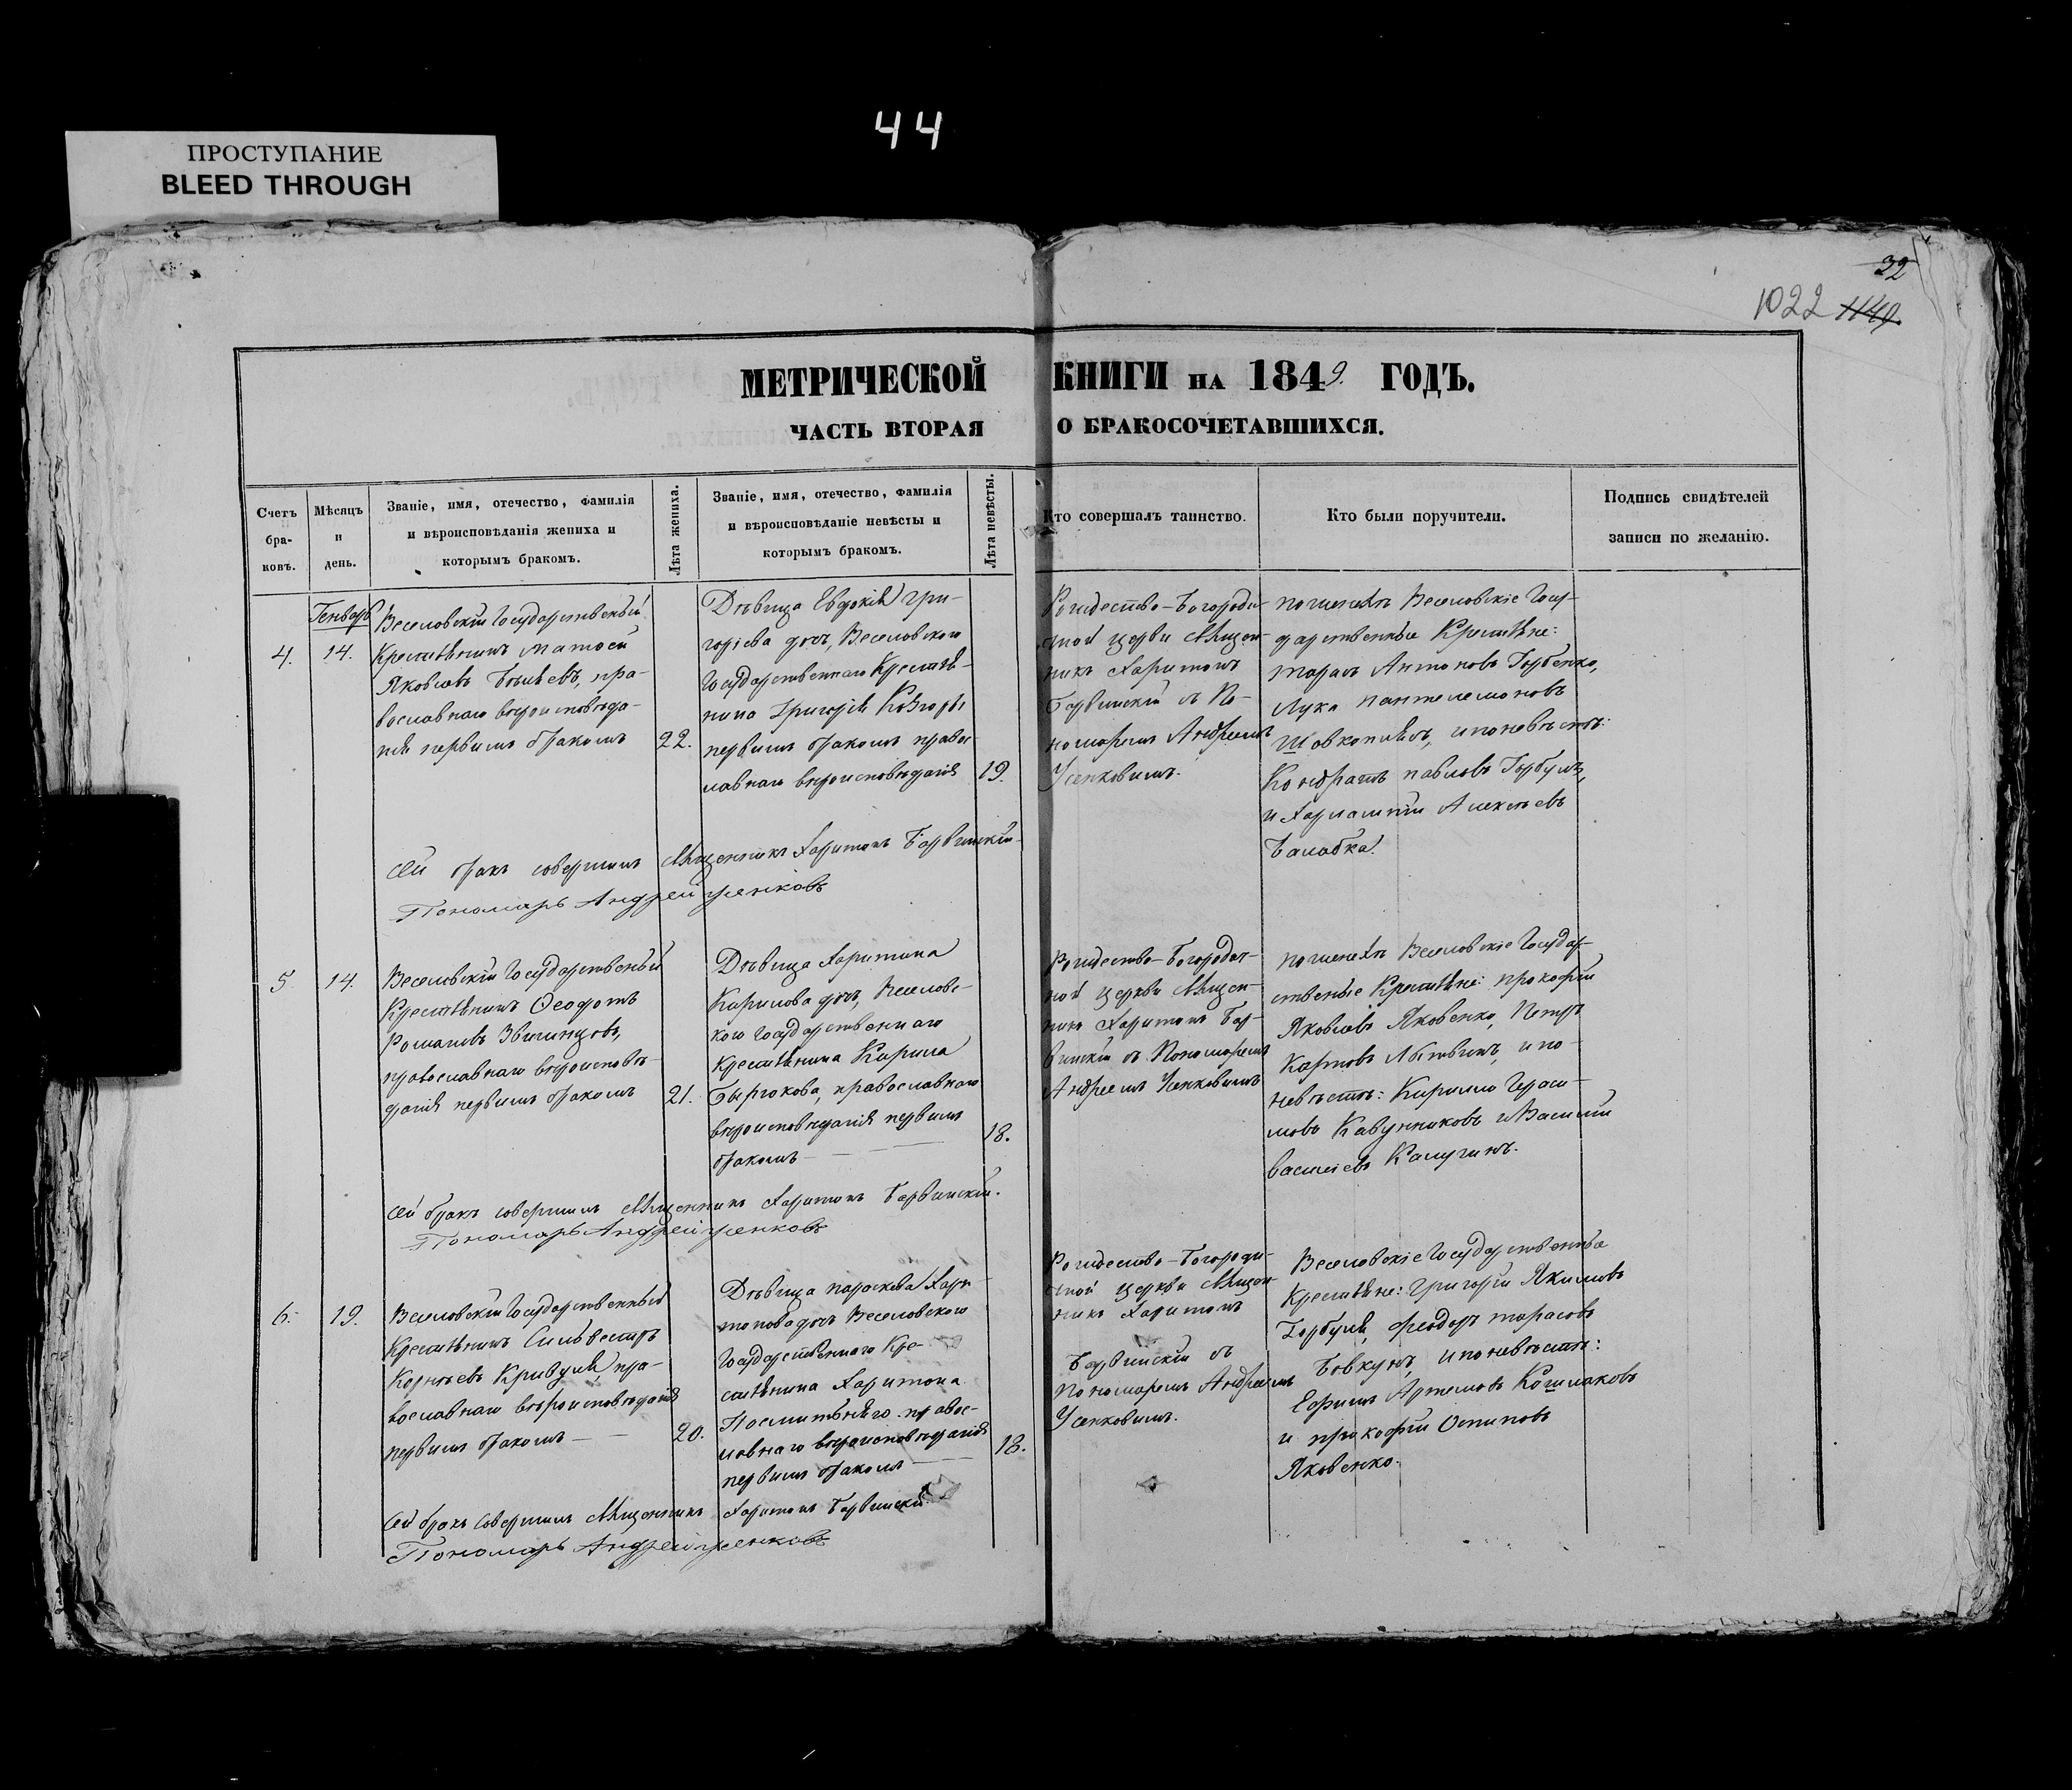 44
ПРОСТУПАНИЕ
BLEED THROUGH
32
1022 1149.
МЕТРИЧЕСКОЙ КНИГИ НА 1849. ГОДЪ.
ЧАСТЬ ВТОРАЯ О БРАКОСОЧЕТАВШИХСЯ.
Счетъ
бра-
ковъ.
Мѣсяцъ
и
день.
Званіе, имя, отечество, фамилія
и вѣроисповѣданія жениха и
которымъ бракомъ.
Лѣта жениха.
Званіе, имя, отечество, фамилія
и вѣроисповѣданіе невѣсты и
которымъ бракомъ.
Лѣта невѣсты.
Кто совершалъ таинство.
Кто были поручители.
Подпись свидѣтелей
записи по желанію.
4.
Генварь
14.
Веселовскій Государственый
Крестянинъ Матвей
Яковлевъ
пра-
вославнаго вѣроисповѣда-
нія первымъ бракомъ
22.
Дѣвица Евдокія Гри-
горіева дочь, Веселовскаго
Государственнаго Крестя-
нина Григорія
первымъ бракомъ правос-
лавнаго вѣроисповѣданія
19.
Рождество-Богороди-
чной церкви Священ-
никъ Харитонъ
Барвинскій съ По-
номаремъ Андреемъ
Усенковымъ.
по женихѣ Веселовскіе Госу-
дарственные Крестяне:
Тарасъ Антоновъ Горбенко,
Лука Пантелемоновъ
Шовкоплясъ, и по невѣстѣ:
Кондратъ Павловъ Горбуля,
и Харлампій Алексѣевъ
Балабка.
Сей бракъ совершилъ Священникъ Харитонъ Барвинскій
Пономарь Андрей Усенковъ
5
14.
Веселовскій Государственый
Крестянинъ Ѳеодотъ
Романовъ Звягинцовъ,
православнаго вѣроисповѣ-
данія первымъ бракомъ
21.
Дѣвица Харитина
Карпова дочь, Веселовс-
каго Государственнаго
Крестянина Карпа
православнаго
вѣроисповѣданія первымъ
бракомъ
18.
Рождество-Богородич-
ной церкви Священ-
никъ Харитонъ Бар-
винскій съ Пономаремъ
Андреемъ Усенковымъ
по женихѣ Веселовскіе Государ-
ственые Крестяне: Прокофій
Яковлевъ Яковенко, Петръ
Карповъ Литвинъ, и по
невѣстѣ: Кирилло Гераси-
мовъ Кавунниковъ и Василій
Василіевъ Калугинъ.
Сей бракъ совершилъ Священникъ Харитонъ Барвинскій.
Пономарь Андрей Усенковъ
6.
19.
Веселовскій Государственный
Крестянинъ Сильвестръ
Корнѣевъ Кривуля, пра-
вославнаго вѣроисповѣданія
первымъ бракомъ
20.
Дѣвица Параскева Хари-
тонова дочь Веселовскаго
Государственнаго Кре-
стянина Харитона
правос-
лавнаго вѣроисповѣданія
первымъ бракомъ
18.
Рождество-Богороди-
чной церкви Священ-
никъ Харитонъ
Барвинскій съ
Пономаремъ Андреемъ
Усенковымъ.
Веселовскіе Государственые
Крестяне: Григорій Якимовъ
Горбуля, Феодоръ Тарасовъ
Бовкунъ, и по невѣстѣ:
Ефимъ Артемовъ Кошлаковъ
и Прокофій Осиповъ
Яковенко.
Сей бракъ совершилъ Священникъ Харитонъ Барвинскій
Пономарь Андрей Усенковъ